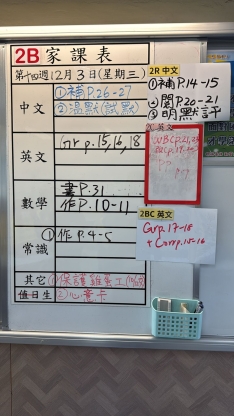 2B 家課表
第十四週12月3日(星期三)
中文
①補P.26-27
②溫默(試默)
英文
Grp.15,16,18
數學
書P.31
作P.10-11
常識
①作P.4-5
其它
①保護雞蛋工
值日生
②心意卡
2R 中文
①補P.14-15
②閱P.20-21
③明默詞
2C 英文
2BC 英文
Grp.17-18
+ Corrp.15-16